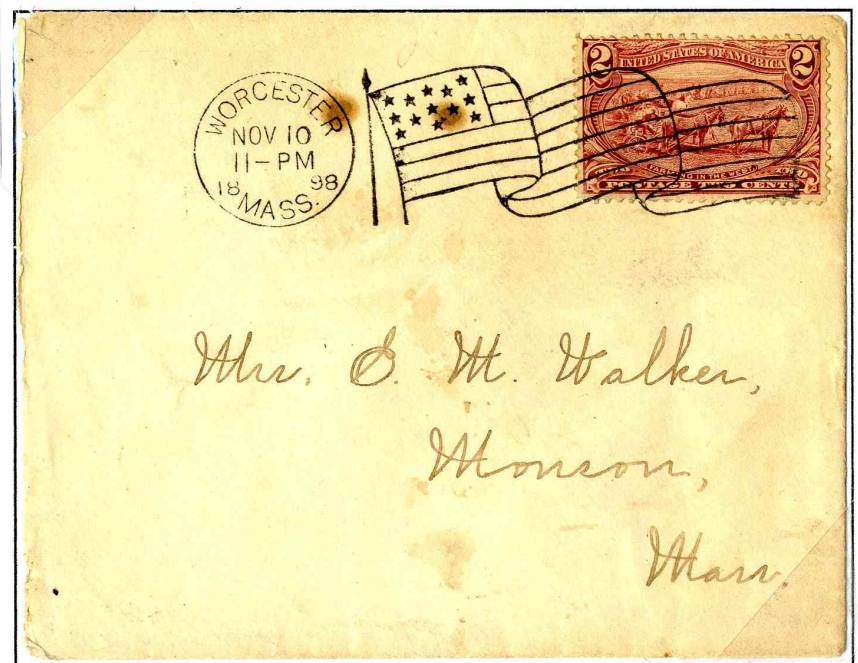 WORCESTER
NOV 10
11-PM
18 98
MASS.
2 2
UNITED STATES OF AMERICA
FARMING IN THE WEST.
POSTAGE TWO CENTS
Mrs. E. M. Walker,
Monson,
Mass.